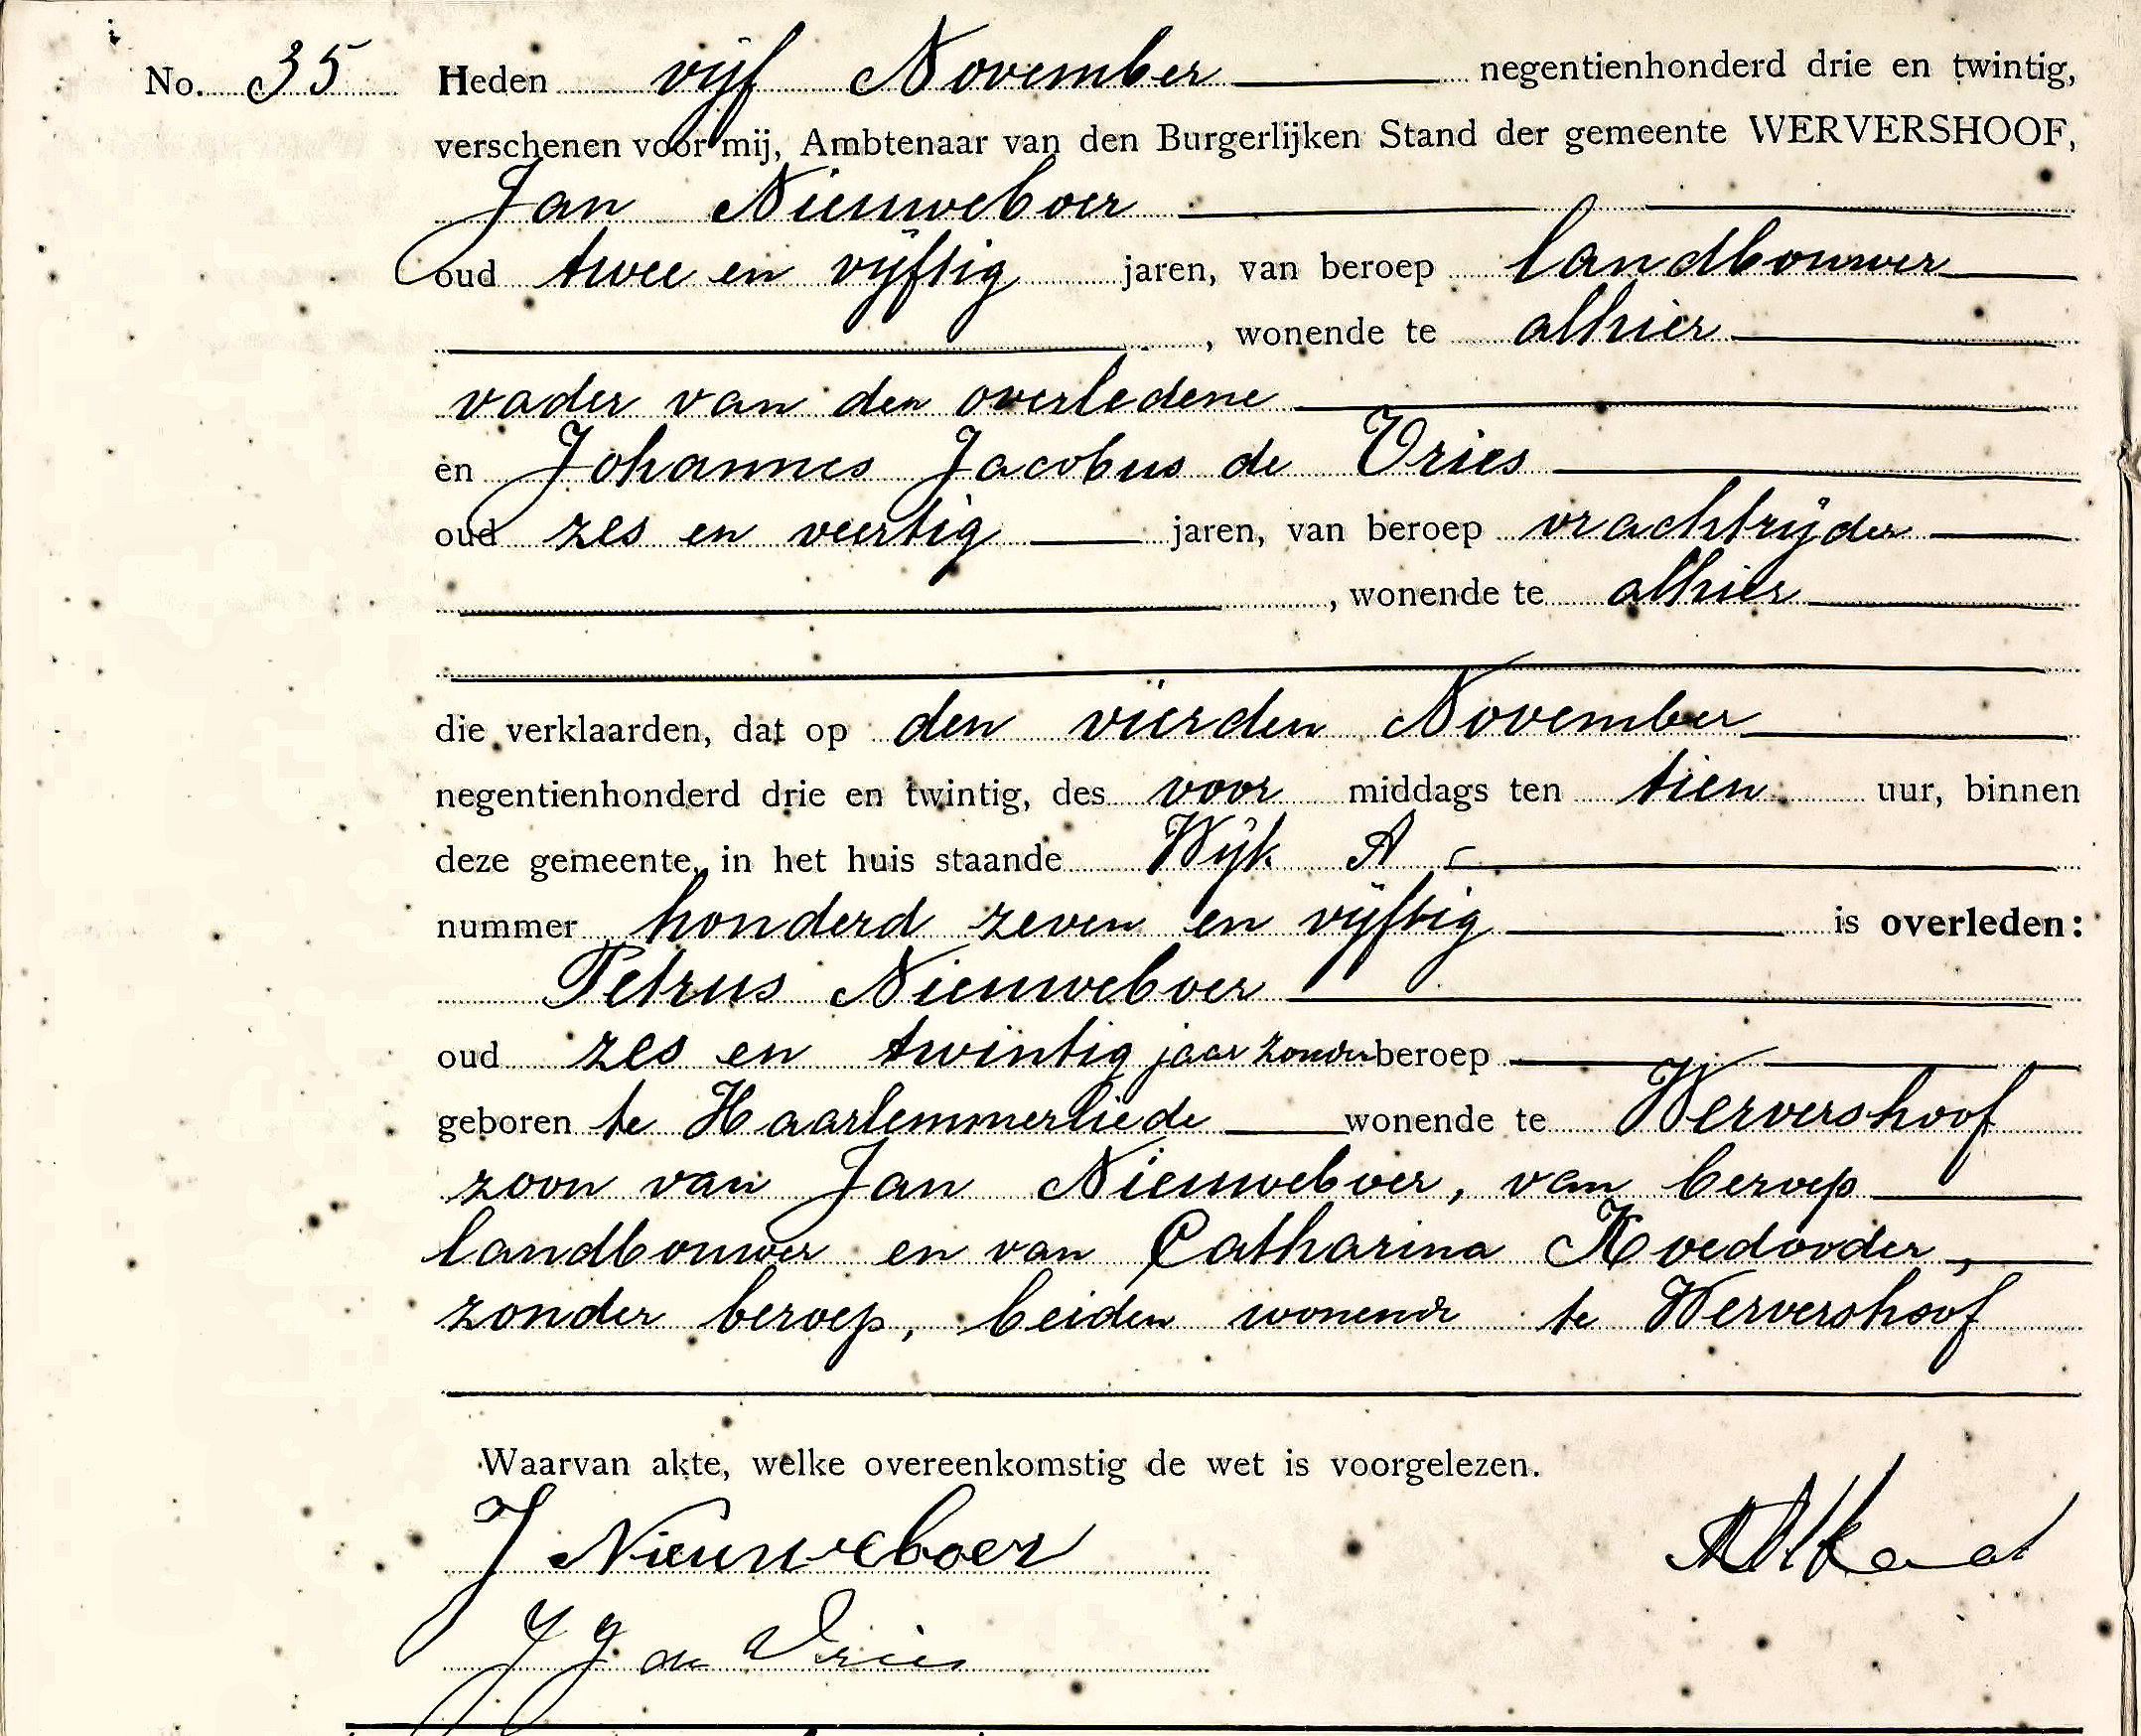 No. 35 Heden vijf November negentienhonderd drie en twintig,
verschenen voor mij, Ambtenaar van den Burgerlijken Stand der gemeente WERVERSHOOF,
Jan Nieuweboer
oud twee en vijftig jaren, van beroep landbouwer
, wonende te alhier
vader van den overledene
en Johannes Jacobus de Vries
oud zes en veertig jaren, van beroep vrachtrijder
, wonende te alhier
die verklaarden, dat op den vierden November
negentienhonderd drie en twintig, des voor middags ten tien uur, binnen
deze gemeente, in het huis staande Wijk A
nummer honderd zeven en vijftig is overleden:
Petrus Nieuweboer
oud zes en twintig jaar zonder beroep
geboren te Haarlemmerliede wonende te Wervershoof
zoon van Jan Nieuweboer, van beroep
landbouwer en van Catharina Koedooder,
zonder beroep, beiden wonende te Wervershoof
Waarvan akte, welke overeenkomstig de wet is voorgelezen.
J Nieuweboer
J J de Vries